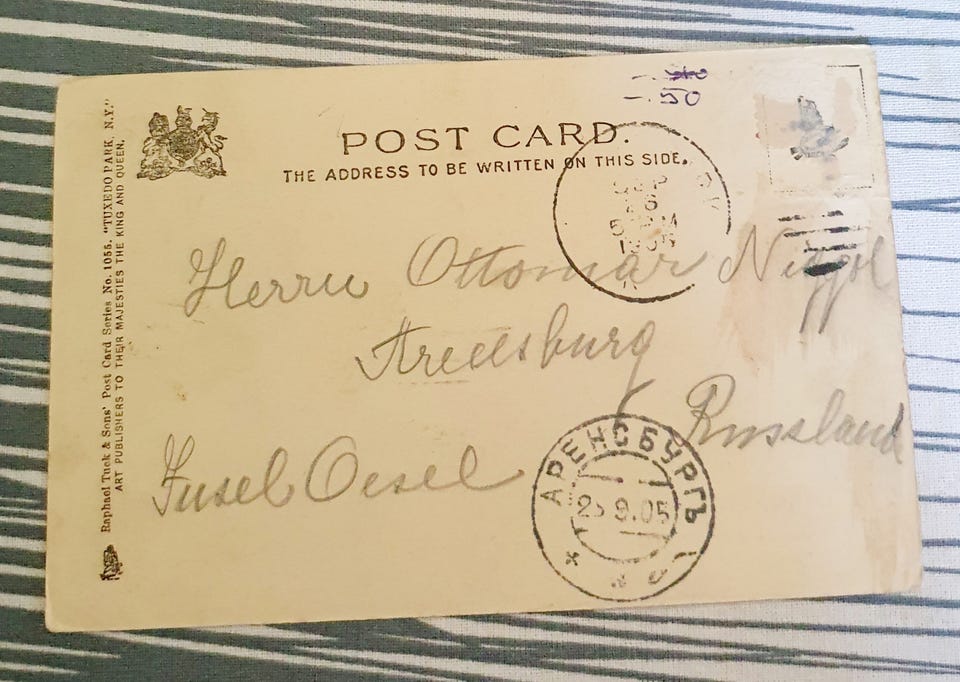 50
POST CARD.
THE ADDRESS TO BE WRITTEN ON THIS SIDE.
SEP
5
1905
Herrn Ottomar
Arensburg
Russland
Insel Oesel
АРЕНСБУРГЪ
9.05
Raphael Tuck & Sons' Post Card Series No. 1055. "TUXEDO PARK, N.Y."
ART PUBLISHERS TO THEIR MAJESTIES THE KING AND QUEEN.